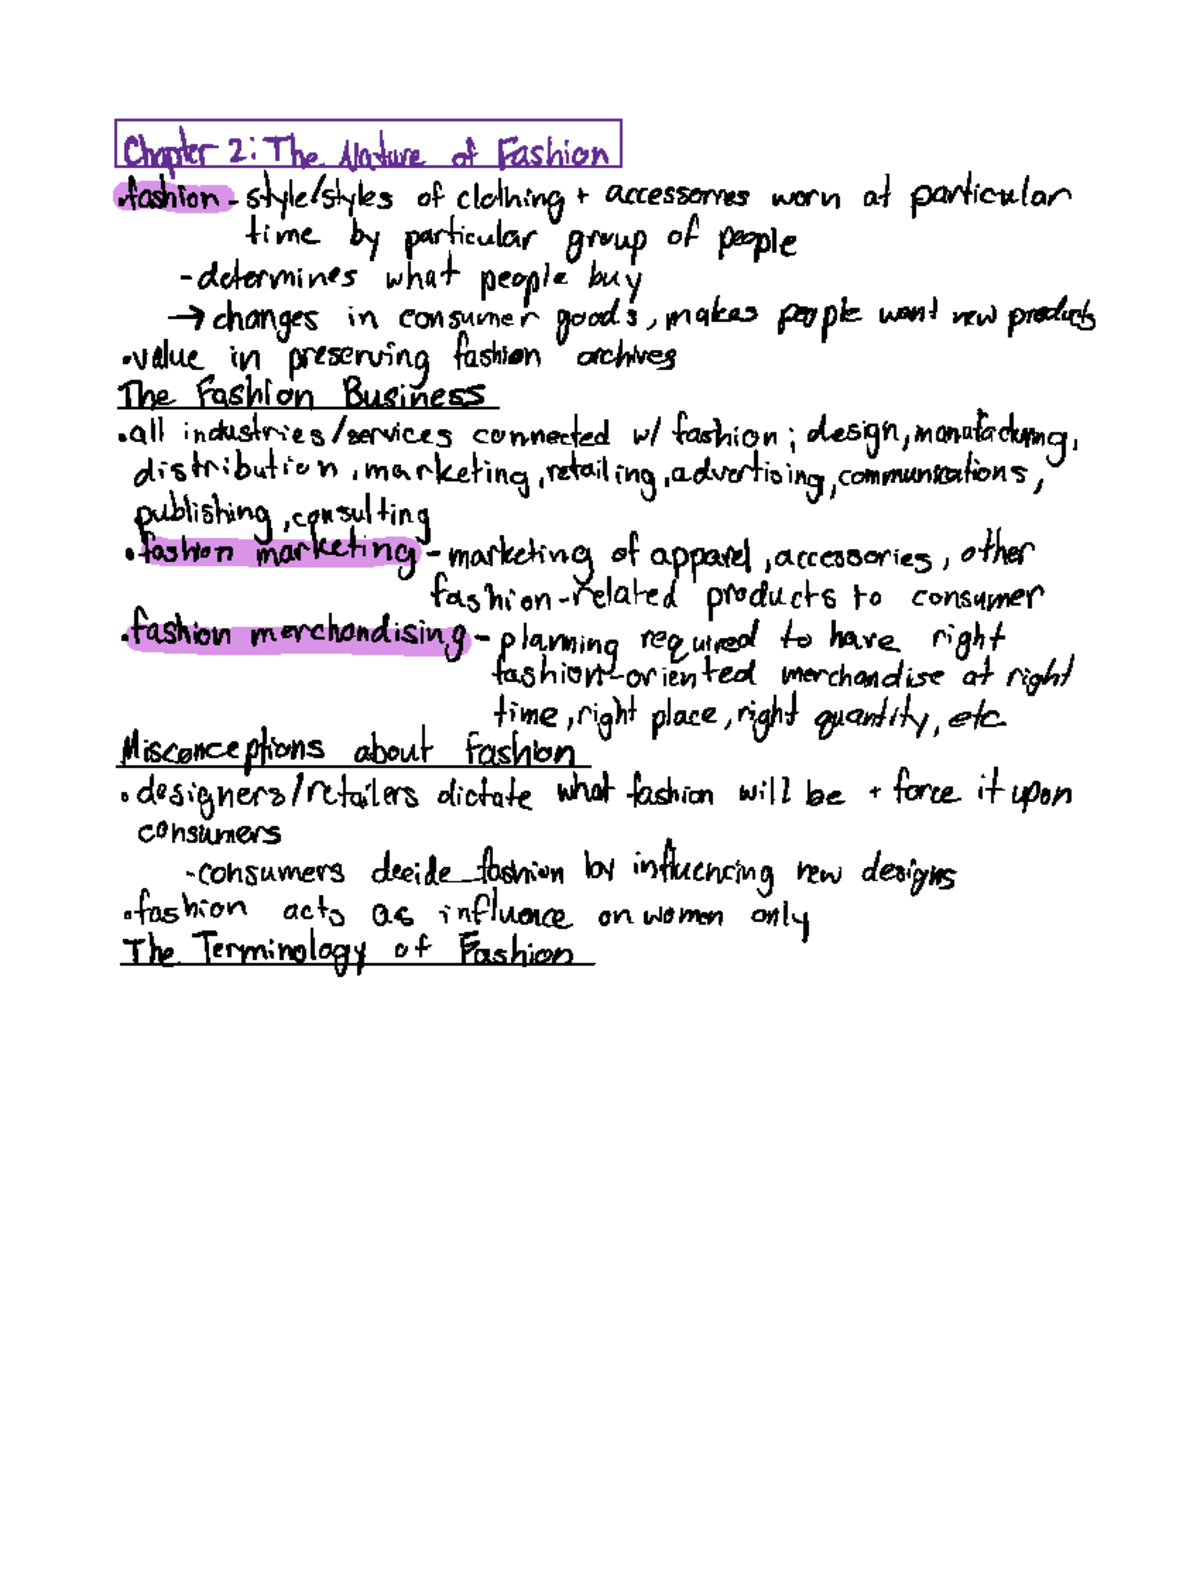 Chapter 2: The Nature of Fashion
•fashion - style/styles of clothing + accessories worn at particular
time by particular group of people
-determines what people buy
→ changes in consumer goods, makes people want new products
•value in preserving fashion archives
The Fashion Business
•all industries/services connected w/ fashion; design, manufacturing,
distribution, marketing, retailing, advertising, communications,
publishing, consulting
•fashion marketing - marketing of apparel, accessories, other
fashion-related products to consumer
•fashion merchandising - planning required to have right
fashion-oriented merchandise at right
time, right place, right quantity, etc
Misconceptions about Fashion
•designers/retailers dictate what fashion will be + force it upon
consumers
-consumers decide fashion by influencing new designs
•fashion acts as influence on women only
The Terminology of Fashion